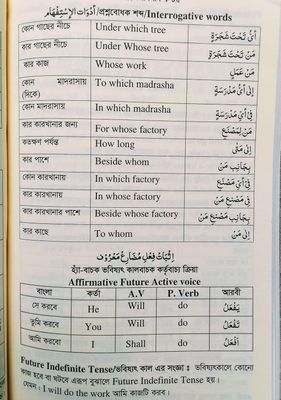 প্রশ্নবোধক শব্দ/Interrogative words/أَدَوَاتُ الْاِسْتِفْهَامِ
কোন গাছের নীচে Under which tree أَيُّ تَحْتَ شَجَرَةٍ
কার গাছের নীচে Under Whose tree مَنْ تَحْتَ شَجَرَةٍ
কার কাজ Whose work مَنْ عَمَلٌ
কোন মাদরাসায় (দিকে) To which madrasha إِلَى أَيِّ مَدْرَسَةٍ
কোন মাদরাসায় In which madrasha فِي أَيِّ مَدْرَسَةٍ
কার কারখানার জন্য For whose factory مَنْ لِمَصْنَعٍ
কতক্ষণ পর্যন্ত How long إِلَى مَتَى
কার পাশে Beside whom بِجَانِبِ مَنْ
কোন কারখানায় In which factory فِي أَيِّ مَصْنَعٍ
কার কারখানায় In whose factory فِي مَصْنَعِ مَنْ
কার কারখানার পাশে Beside whose factory بِجَانِبِ مَصْنَعِ مَنْ
কার কাছে To whom إِلَى مَنْ
إِثْبَاتُ فِعْلِ مُضَارِعْ مَعْرُوْفْ
হ্যাঁ-বাচক ভবিষ্যৎ কালবাচক কর্তৃবাচ্য ক্রিয়া
Affirmative Future Active voice
বাংলা কর্তা A.V P. Verb আরবী
সে করবে He Will do يَفْعَلُ
তুমি করবে You Will do تَفْعَلُ
আমি করবো I Shall do اَفْعَلُ
Future Indefinite Tense/ভবিষ্যৎ কাল এর সংজ্ঞাঃ ভবিষ্যৎকালে কোনো
কাজ হবে বা ঘটবে এরূপ বুঝালে Future Indefinite Tense হয়।
যেমন : I will do the work আমি কাজটি করব।